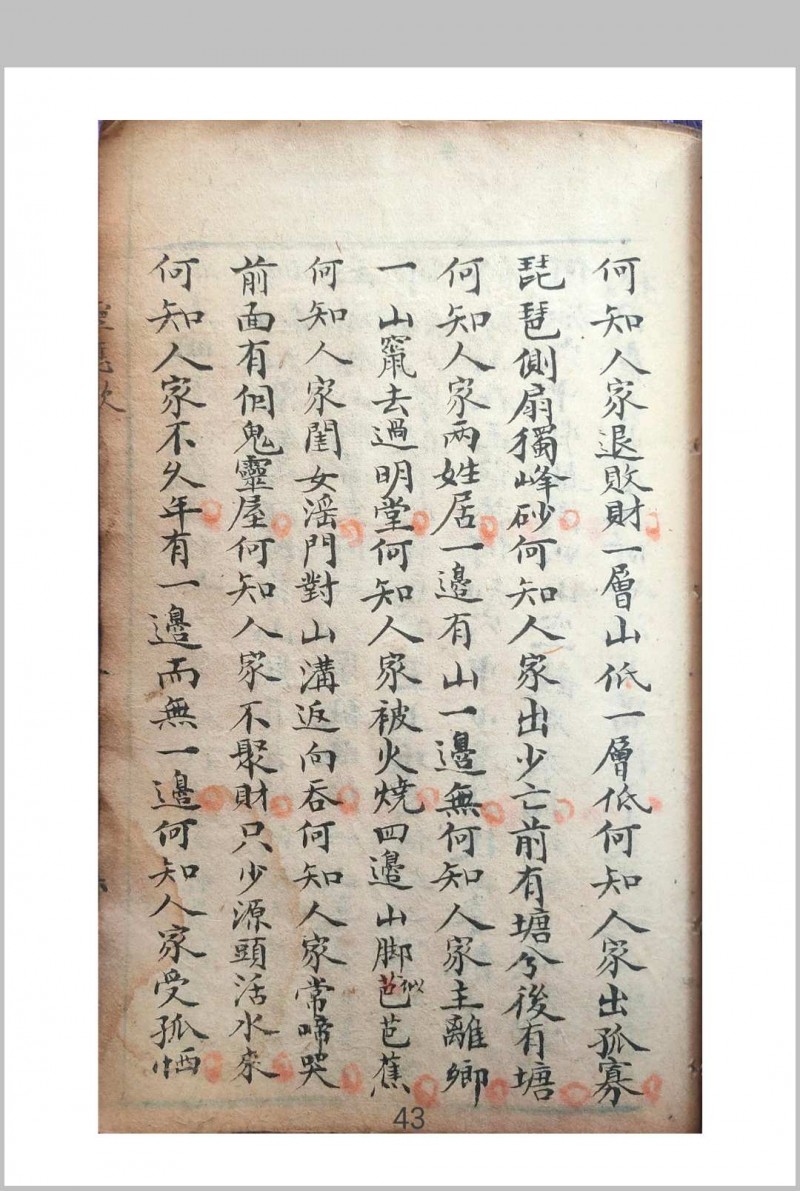 何知人家退敗財一層山低一層低何知人家出孤寡
琵琶側扇獨峰砂何知人家出少亡前有塘兮後有塘
何知人家两姓居一邉有山一邉無何知人家主離鄉
一山竄去過明堂何知人家被火燒四邉山脚芭似芭蕉
何知人家閨女滛門對山溝返向吞何知人家常啼哭
前面有個鬼靈屋何知人家不聚財只少源頭活水來
何知人家不久年有一邉而無一邉何知人家受孤恓
43